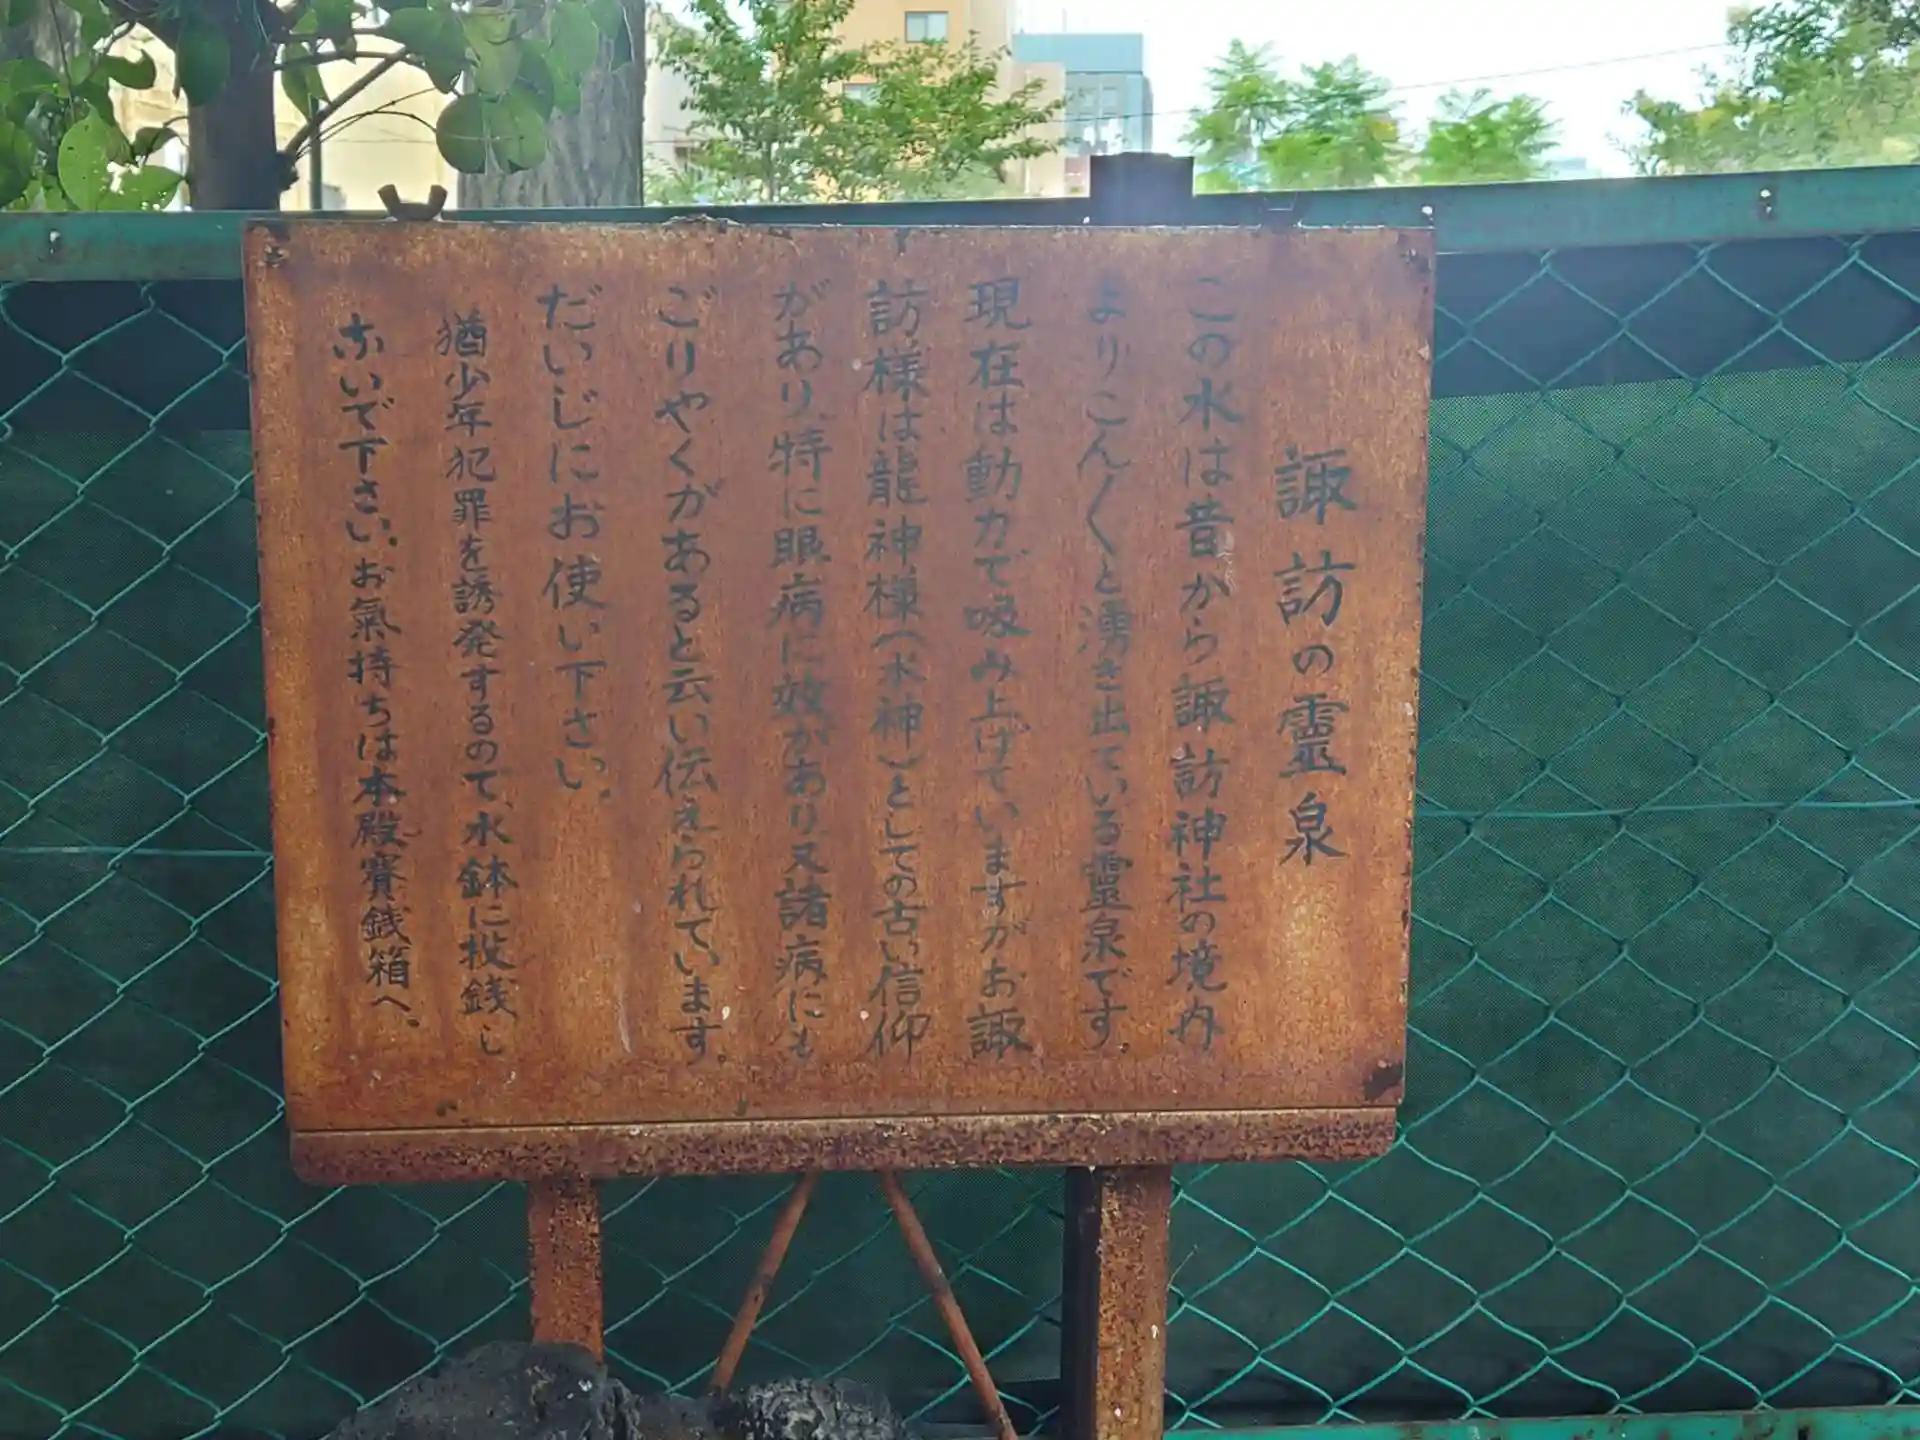 諏訪の霊泉
この水は昔から諏訪神社の境内
よりこん〱と湧き出ている霊泉です。
現在は動力で吸み上げていますがお諏
訪様は龍神様(水神)としての古い信仰
があり、特に眼病に效があり又諸病にも
ごりやくがあると云い伝えられています。
だいじにお使い下さい。
猶少年犯罪を誘発するので、水鉢に投銭し
ないで下さい、お氣持ちは本殿賽銭箱へ。